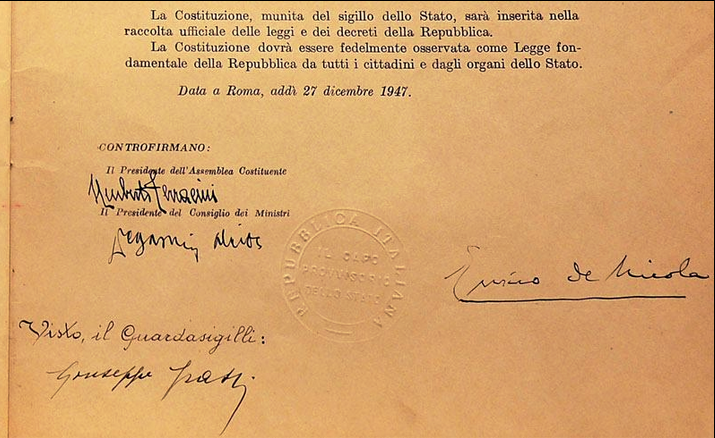 La Costituzione, munita del sigillo dello Stato, sarà inserita nella
raccolta ufficiale delle leggi e dei decreti della Repubblica.
La Costituzione dovrà essere fedelmente osservata come Legge fon-
damentale della Repubblica da tutti i cittadini e dagli organi dello Stato.
Data a Roma, addì 27 dicembre 1947.
CONTROFIRMANO:
Il Presidente dell'Assemblea Costituente
Umberto Terracini
Il Presidente del Consiglio dei Ministri
REPUBBLICA ITALIANA
IL CAPO
PROVVISORIO
DELLO STATO
Enrico de Nicola
Visto, il Guardasigilli:
Giuseppe Grassi